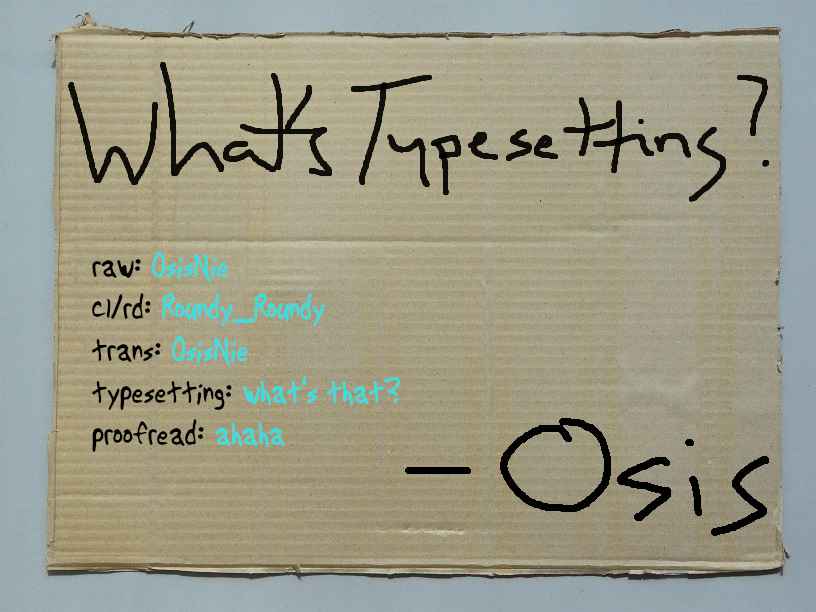 What's Typesetting?
raw: OsisNie
cl/rd: Roundy_Roundy
trans: OsisNie
typesetting: what's that?
proofread: ahaha
— Osis